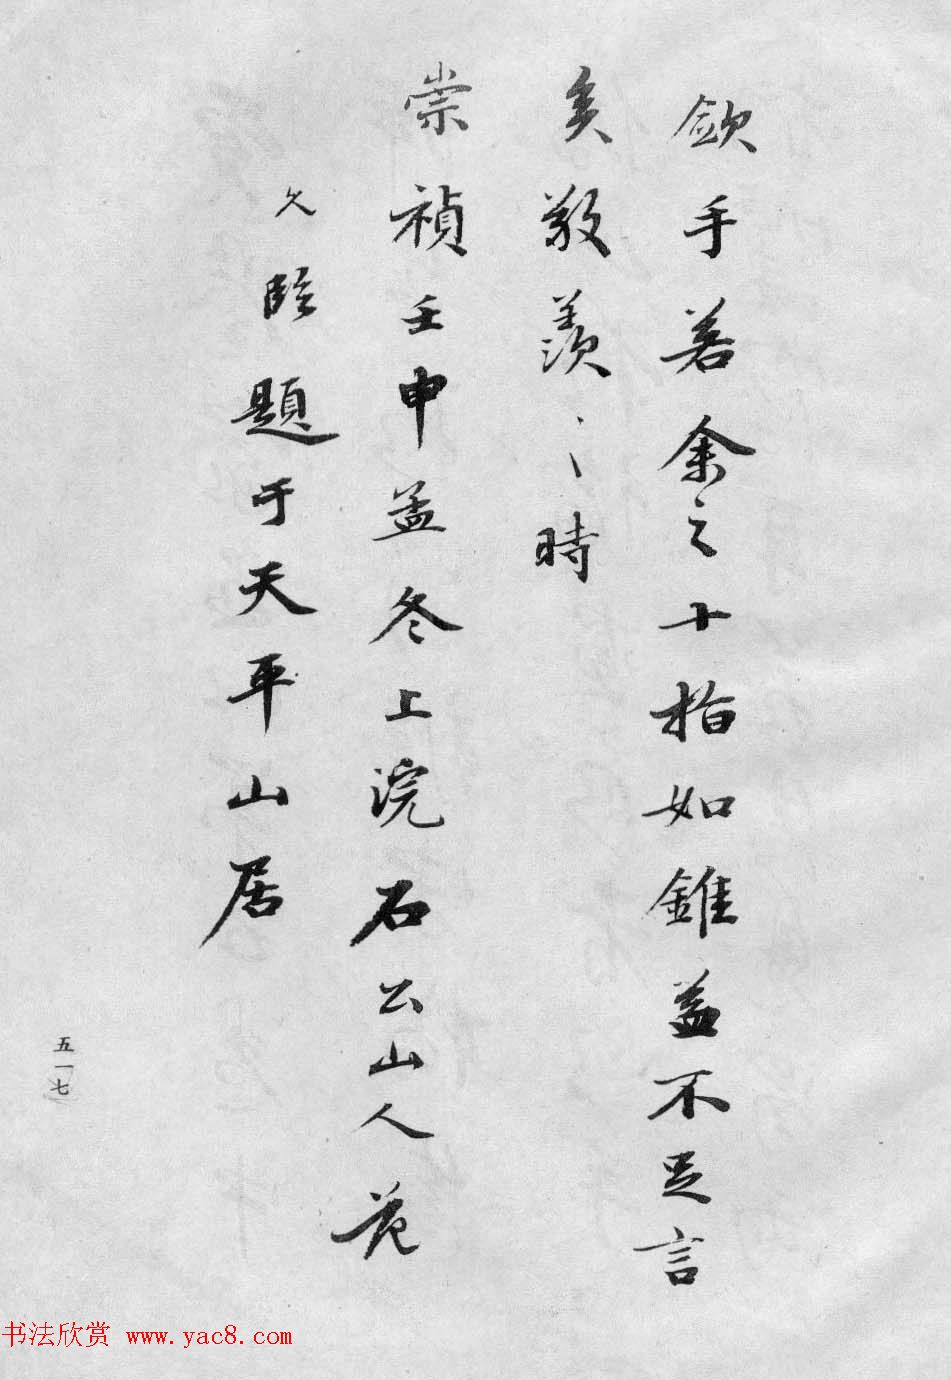 歛手若余之十指如錐益不足言
矣敬羨〻時
崇禎壬申孟冬上浣石公山人范
允臨題于天平山居
五一七
书法欣赏 www.yac8.com